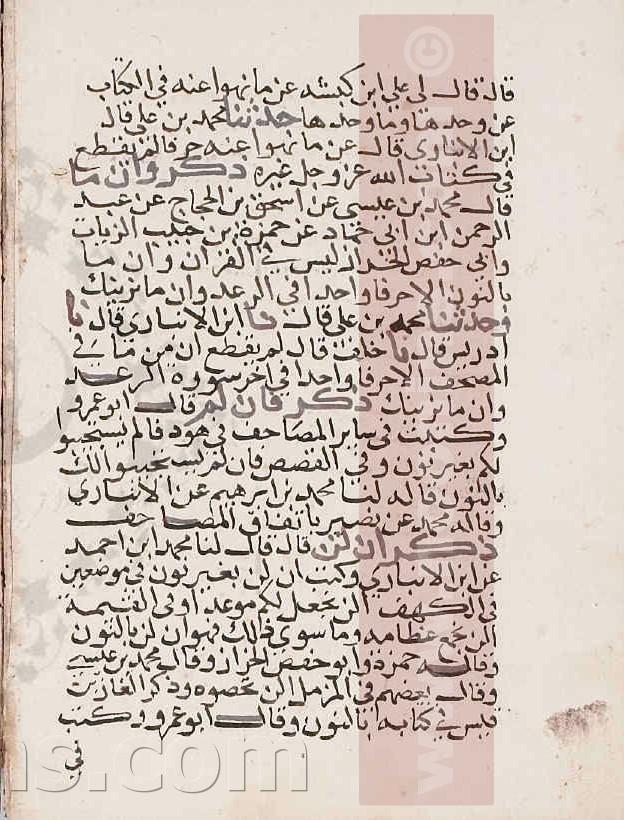 قال قال لي علي ابن كبشه عن ما نهوا عنه في الكتاب
عن وحدها وما وحدها حدثنا محمد بن علي قال
ابن الانباري قال عن ما نهوا عنه حرفا لم يقطع
في كتاب الله عز وجل غيره ذكر وان ما
قال محمد ابن عيسى عن اسحق بن الحجاج عن عبد
الرحمن ابن ابي حماد عن حمزة ابن حبيب الزيات
وابي حفص الخزاز ليس في القران وان ما
بالنون الا حرفا واحدا في الرعد وان ما نرينك
وحدثنا محمد بن علي قال نا ابن الانباري قال نا
ادريس قال نا خلف قال لم يقطع ان من ما في
المصحف الا حرفا واحدا في اخر سورة الرعد
وان ما نرينك ذكر فان لم قال ابو عمرو
وكتبت في ساير المصاحف في هود فالم يستجيبوا
لكم بغير نون وفي القصص فان لم يستجيبوا لك
بالنون قاله لنا محمد بن ابرهيم عن الانباري
وقاله محمد عن نصير باتفاق المصاحف
ذكر ان لن قال قال لنا محمد ابن احمد
عن ابن الانباري وكتب ان لن بغير نون في موضعين
في الكهف الن نجعل لكم موعدا وفي القيمة
الن نجمع عظامه وما سوى ذلك فهو ان لن بالنون
وقاله حمزة وابو حفص الخزاز وقال محمد بن عيسى
وقال بعضهم في المزمل الن تحصوه وذكر الغازي
ليس في كتابه بالنون وقال ابو عمرو وكتب
في
ns.com
©